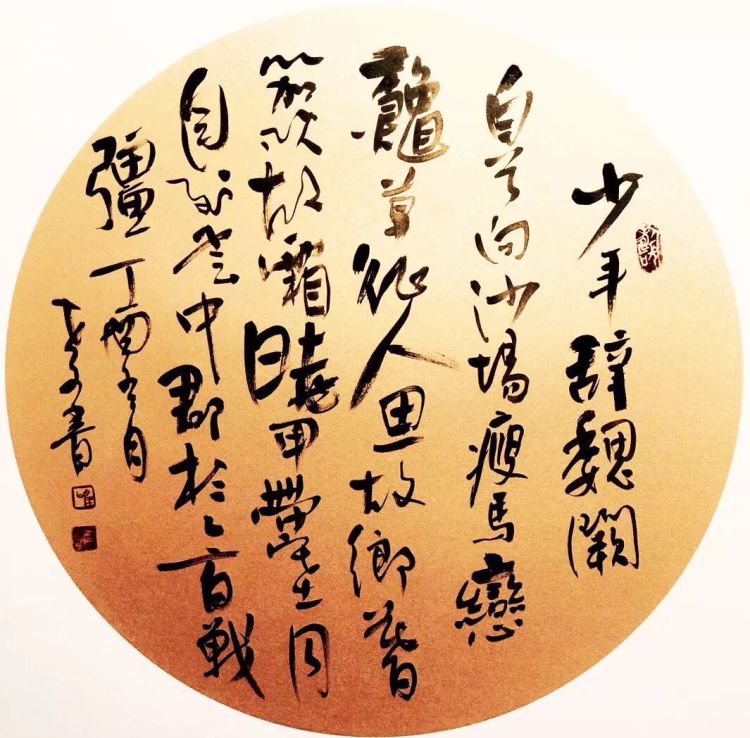 少年辭魏闕
白首向沙場瘦馬戀
龝草征人思故鄉暮
笳吹胡霜曉甲帶塞月
自到雲中郡於今百戰
彊丁酉冬月
書